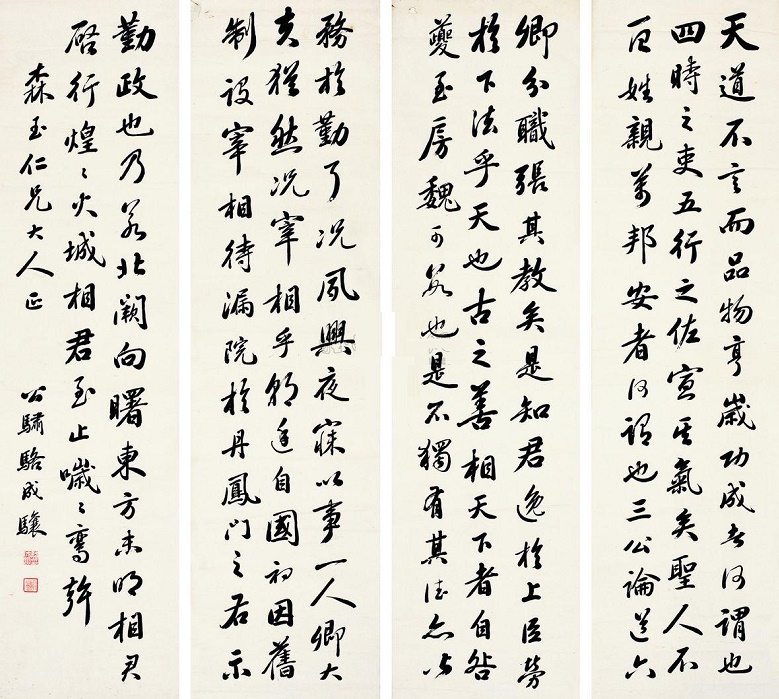 天道不言而品物亨歲功成者何謂也
四時之吏五行之佐宣其氣矣聖人不
百姓親萬邦安者何謂也三公論道六
卿分職張其教矣是知君逸於上臣勞
於下法乎天也古之善相天下者自咎
夔至房魏可數也是不獨有其德亦皆
務於勤耳況夙興夜寐以事一人卿大
夫猶然況宰相乎朝廷自國初因舊
制設宰相待漏院於丹鳳門之右示
勤政也乃若北闕向曙東方未明相君
啓行煌〻火城相君至止噦〻鸞聲
森玉仁兄大人正
公驌駱成驤